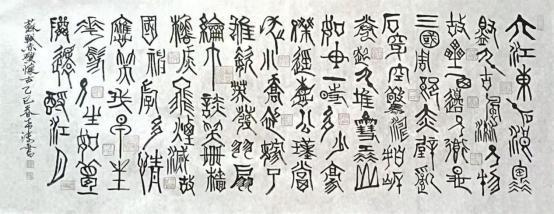 大江東去浪淘
盡千古風流人物
故壘西邊人道是
三國周郎赤壁亂
石穿空驚濤拍岸
捲起千堆雪江山
如畫一時多少豪
傑遙想公瑾當
年小喬初嫁了
雄姿英發羽扇
綸巾談笑間檣
櫓灰飛煙滅故
國神遊多情
應笑我早生
華髮人生如夢
一樽還酹江月
蘇軾赤壁懷古乙巳春書